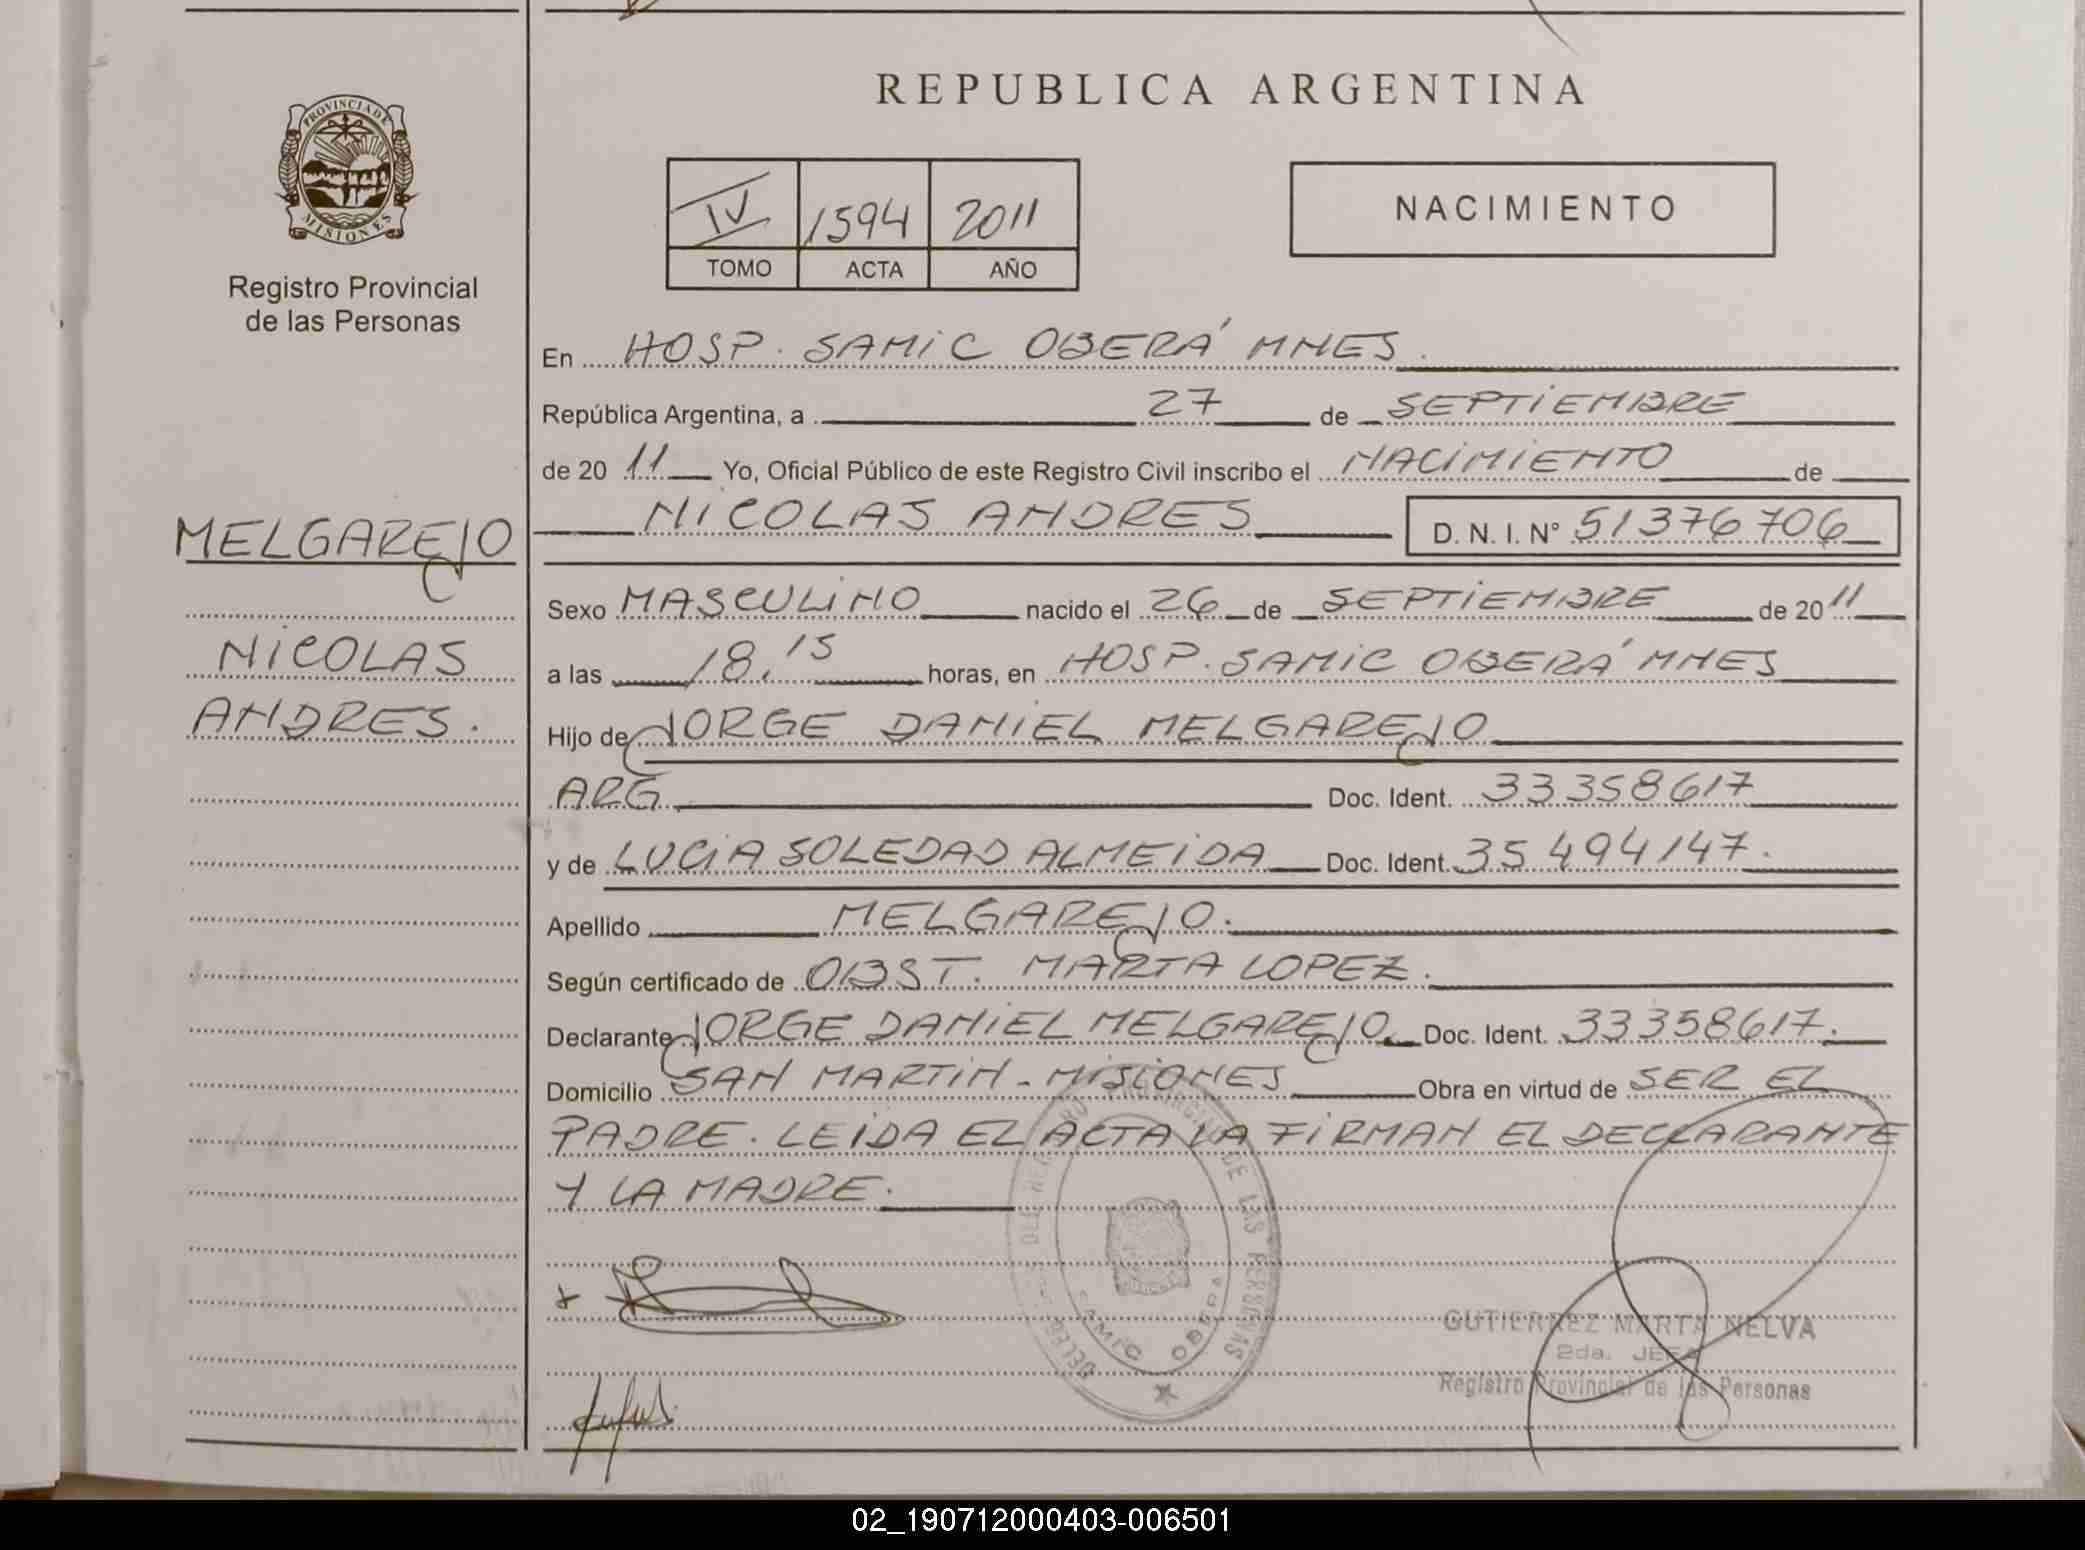 REPUBLICA ARGENTINA
PROVINCIA DE
MISIONES
Registro Provincial
de las Personas
IV 1594 2011
TOMO ACTA AÑO
NACIMIENTO
En HOSP. SAMIC OBERÁ MNES.
República Argentina, a 27 de SEPTIEMBRE
de 20 11 Yo, Oficial Público de este Registro Civil inscribo el NACIMIENTO de
NICOLAS ANDRES D. N. I. N° 51376706
MELGAREJO
NICOLAS
ANDRES.
Sexo MASCULINO nacido el 26 de SEPTIEMBRE de 20 11
a las 18,15 horas, en HOSP. SAMIC OBERÁ MNES
Hijo de JORGE DANIEL MELGAREJO
ARG Doc. Ident. 33358617
y de LUCIA SOLEDAD ALMEIDA Doc. Ident. 35494147.
Apellido MELGAREJO.
Según certificado de OBST. MARTA LOPEZ.
Declarante JORGE DANIEL MELGAREJO. Doc. Ident. 33358617.
Domicilio SAN MARTIN - MISIONES Obra en virtud de SER EL
PADRE. LEIDA EL ACTA LA FIRMAN EL DECLARANTE
Y LA MADRE.
PROVINCIAL DE LAS PERSONAS
SAMIC OBERA
GUTIERREZ MARTA NELVA
2da. JEFA
Registro Provincial de las Personas
02_190712000403-006501